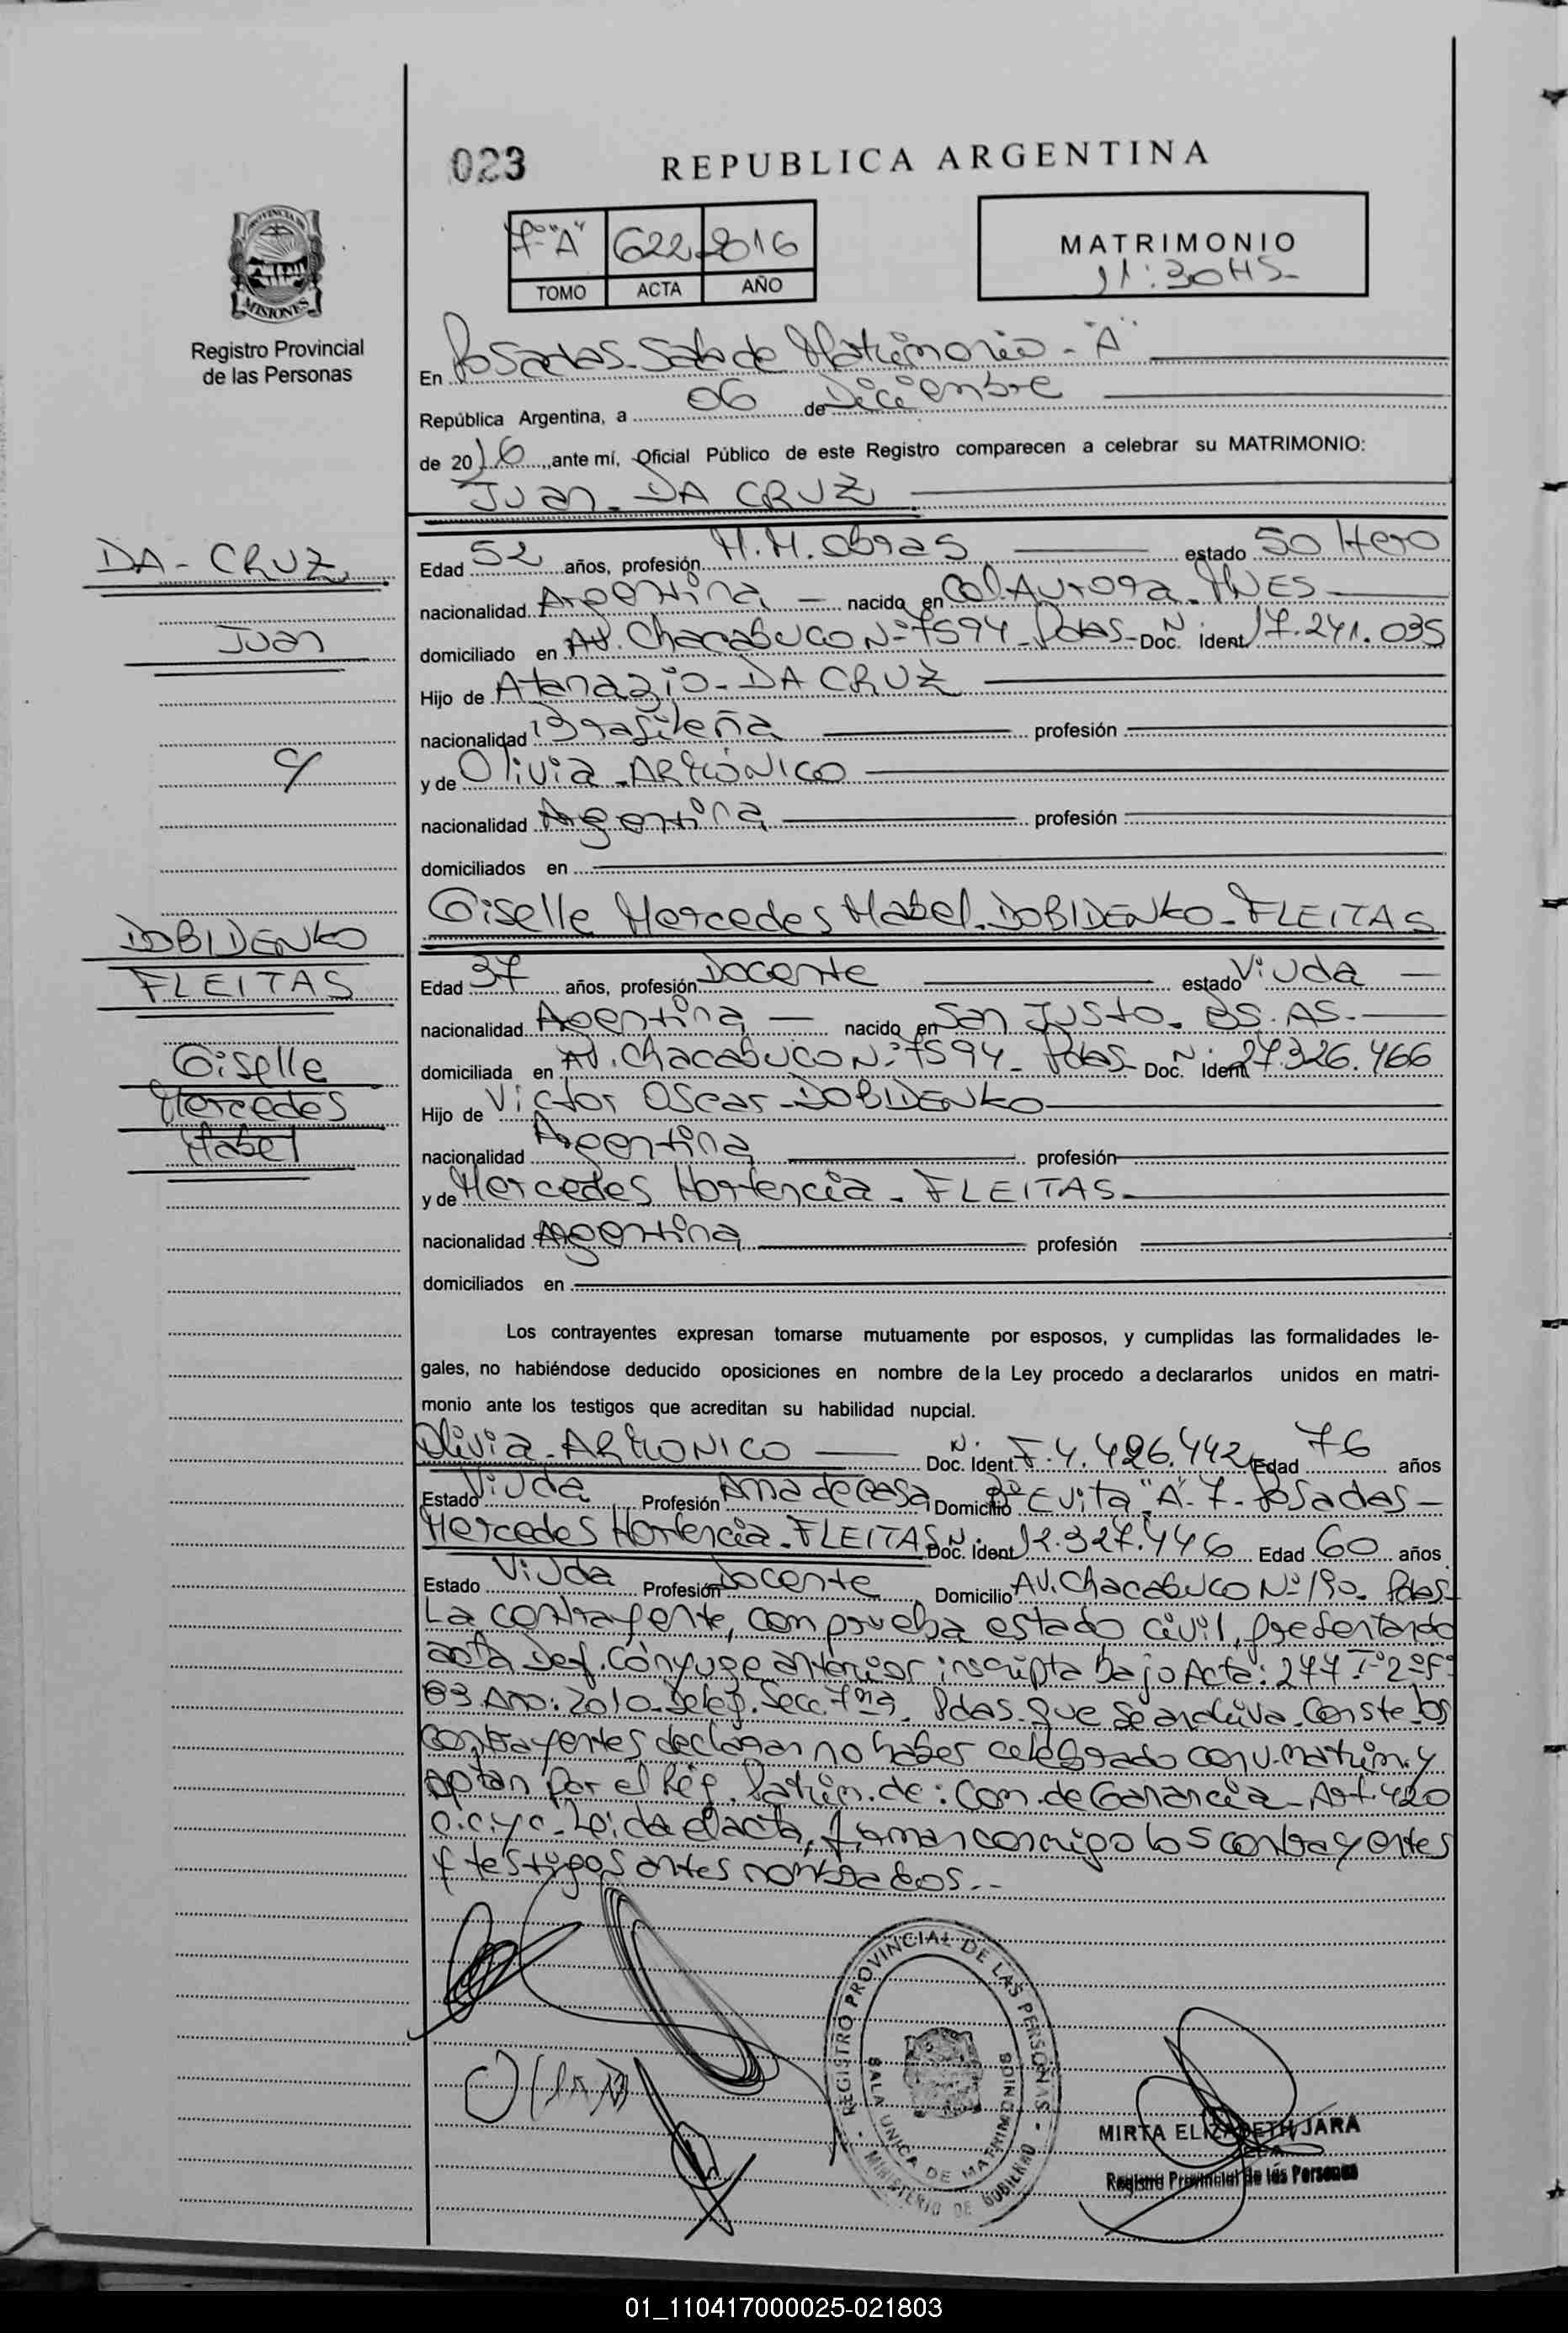 023
REPUBLICA ARGENTINA
7º "A" 622 2016
TOMO ACTA AÑO
MATRIMONIO
11:30 HS-
PROVINCIA DE
MISIONES
Registro Provincial
de las Personas
En Posadas-Sala de Matrimonio-"A"
República Argentina, a 06 de Diciembre
de 2016, ante mí, Oficial Público de este Registro comparecen a celebrar su MATRIMONIO:
Juan- DA CRUZ
DA-CRUZ
Juan
c/
DOBIDENKO
FLEITAS
Giselle
Mercedes
Mabel
Edad 52 años, profesión M.M. Obras estado Soltero
nacionalidad Argentina nacido en Col. Aurora. MNES
domiciliado en Av. Chacabuco Nº 7594- Pdas- Doc. Nº Ident 17.241.035
Hijo de Atanazio- DA CRUZ
nacionalidad Brasileña profesión
y de Olivia - ARMONICO
nacionalidad Argentina profesión
domiciliados en
Giselle Mercedes Mabel- DOBIDENKO- FLEITAS
Edad 37 años, profesión Docente estado Viuda
nacionalidad Argentina nacido en San Justo. BS. AS.
domiciliada en Av. Chacabuco Nº 7594- Pdas- Doc. Nº Ident 27.326.466
Hijo de Victor Oscar- DOBIDENKO
nacionalidad Argentina profesión
y de Mercedes Hortencia - FLEITAS
nacionalidad Argentina profesión
domiciliados en
Los contrayentes expresan tomarse mutuamente por esposos, y cumplidas las formalidades le-
gales, no habiéndose deducido oposiciones en nombre de la Ley procedo a declararlos unidos en matri-
monio ante los testigos que acreditan su habilidad nupcial.
Olivia- ARMONICO Doc. Nº Ident. F. 4.426.442 Edad 76 años
Estado Viuda Profesión Ama de casa Domicilio Bº Evita "A"-7- Posadas-
Mercedes Hortencia- FLEITAS Doc. Nº Ident 12.327.446 Edad 60 años
Estado Viuda Profesión Docente Domicilio Av. Chacabuco Nº 190. Pdas-
La contrayente, comprueba estado civil, presentando
acta Def. Cónyuge anterior inscripta bajo Acta: 277 Tº2º Fº
83 Año: 2010- Deleg. Secc. 7ma. Pdas. que se archiva. Conste los
contrayentes declaran no haber celebrado conv. matrim. y
optan por el Rég. Patrim. de: Com. de Ganancia- Art. 420
C.C.y C- Leída el acta, firman conmigo los contrayentes
y testigos antes nombrados.--
REGISTRO PROVINCIAL DE LAS PERSONAS
SALA UNICA DE MATRIMONIOS
MINISTERIO DE GOBIERNO
MIRTA ELIZABETH JARA
Registro Provincial de las Personas
01_110417000025-021803